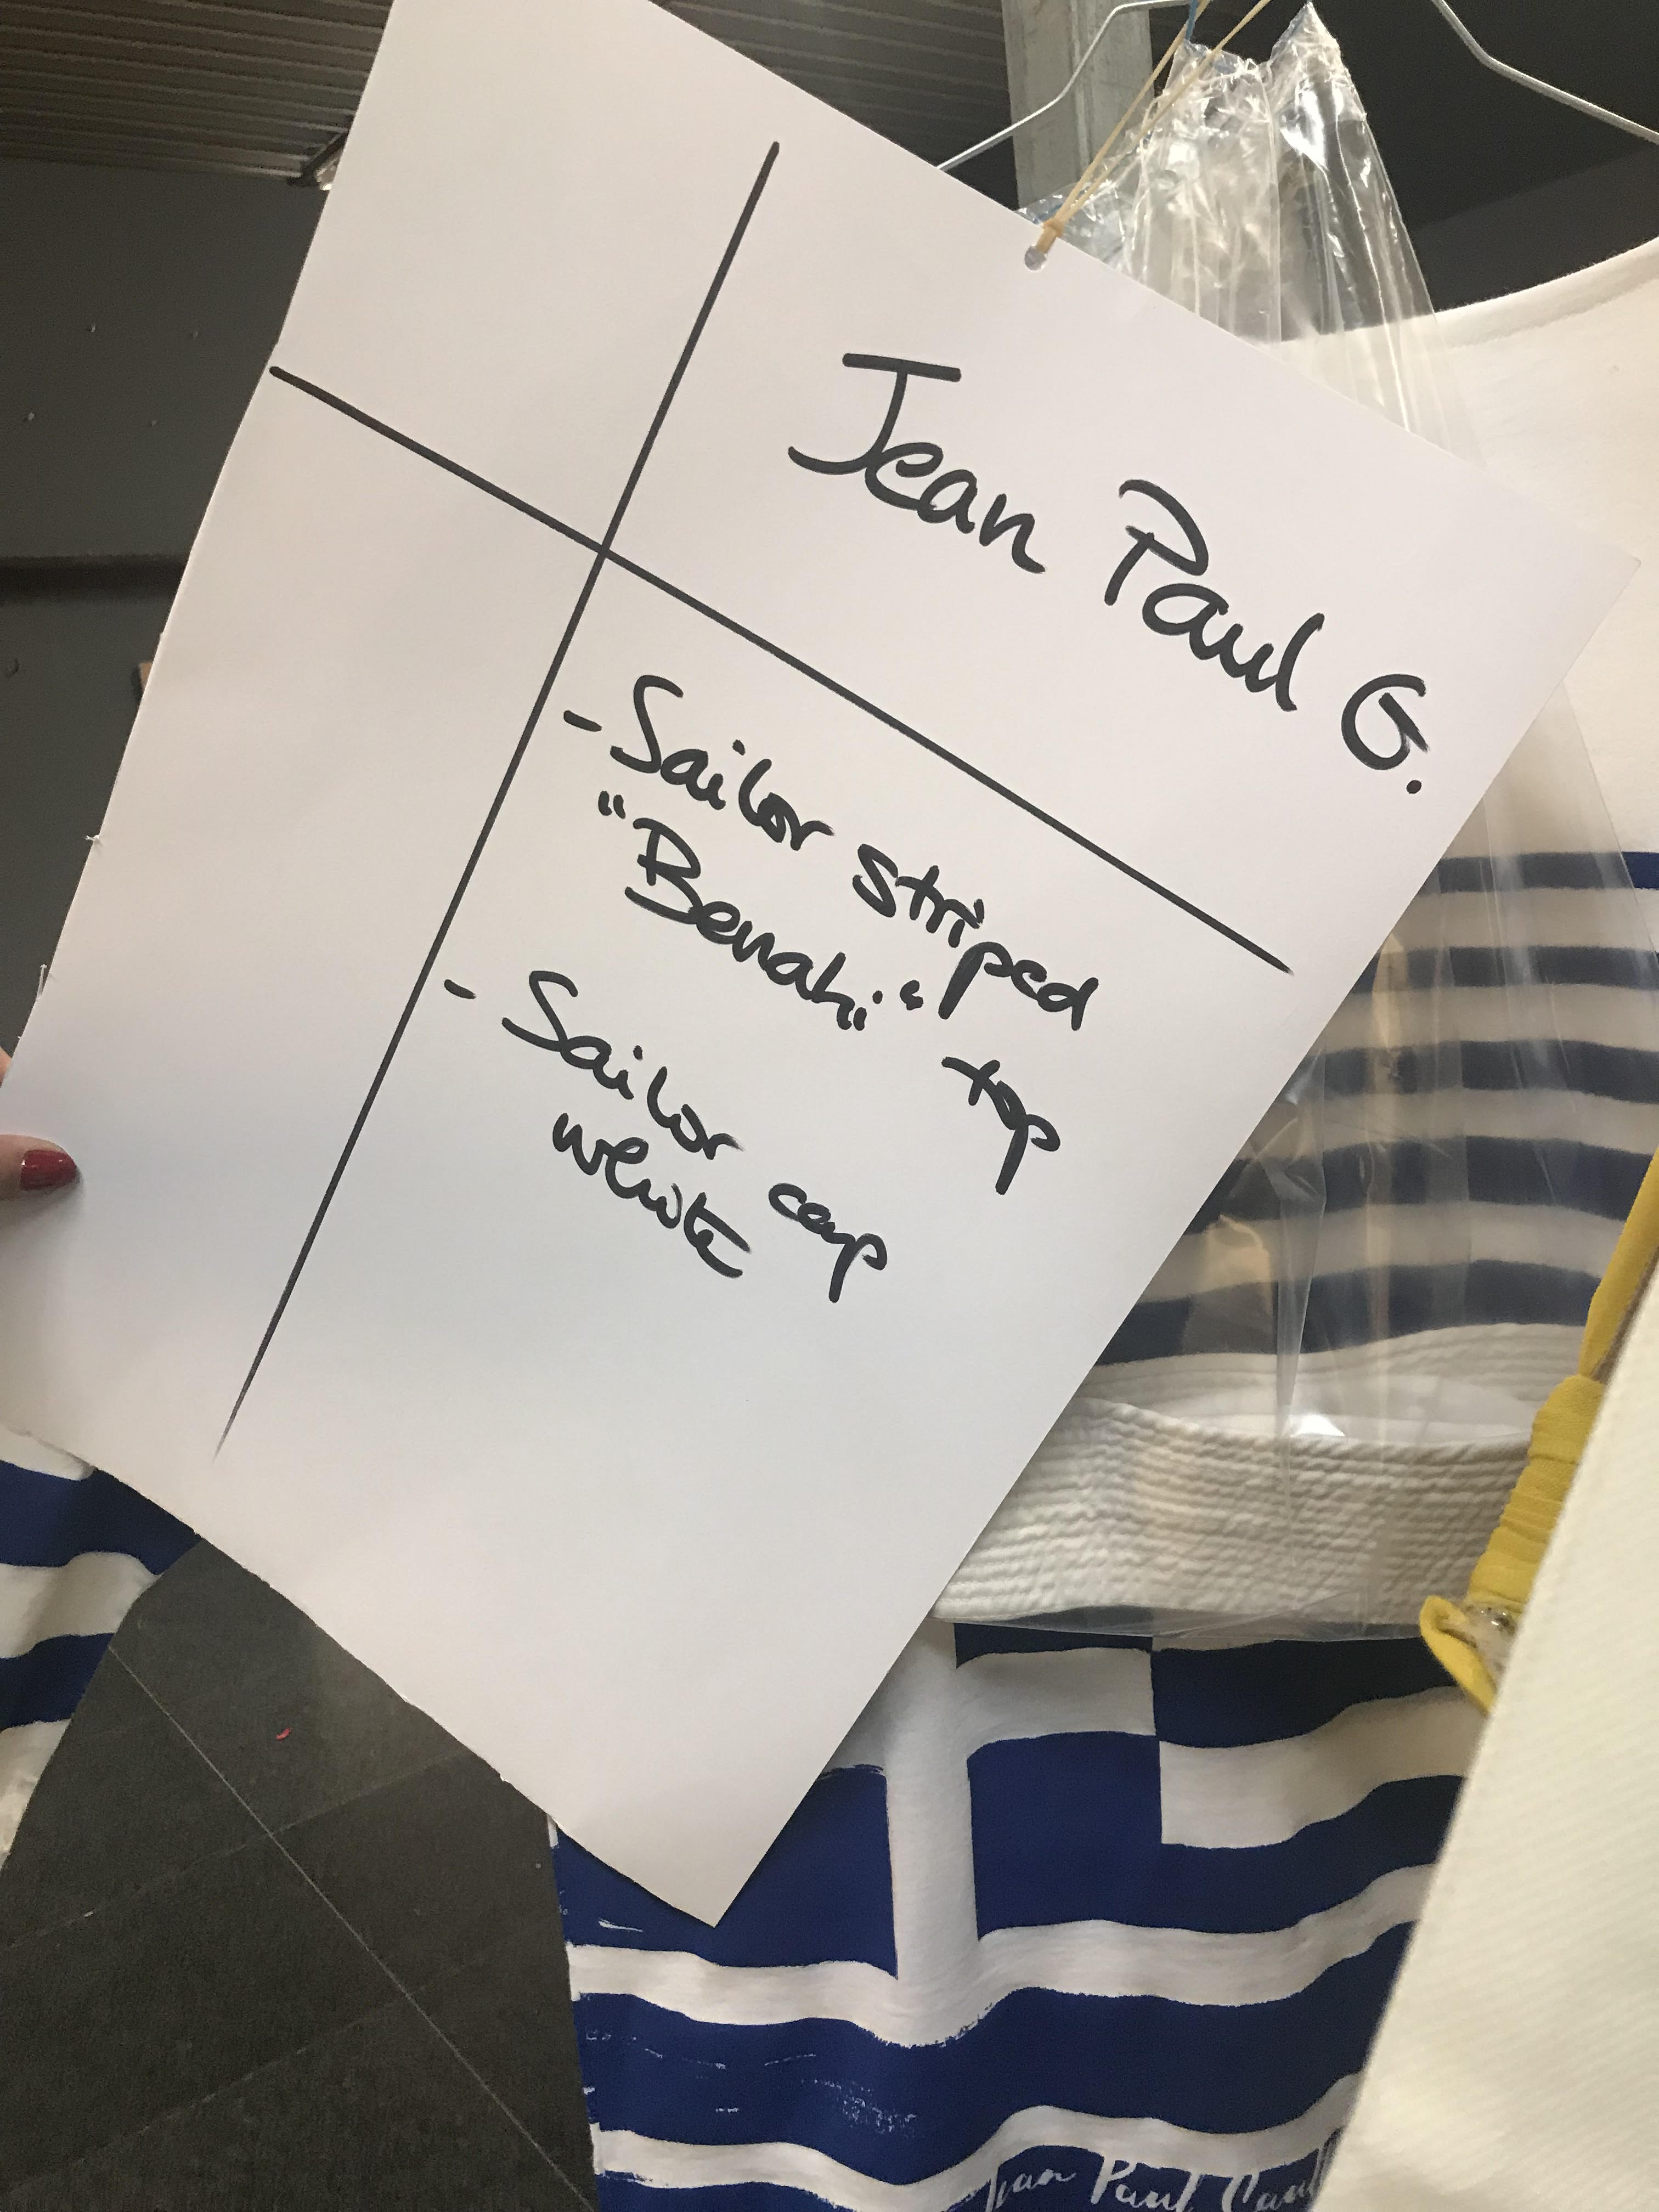 Jean Paul G.
- Sailor striped
"Benaki" top
- Sailor cap
white
Jean Paul Gaul